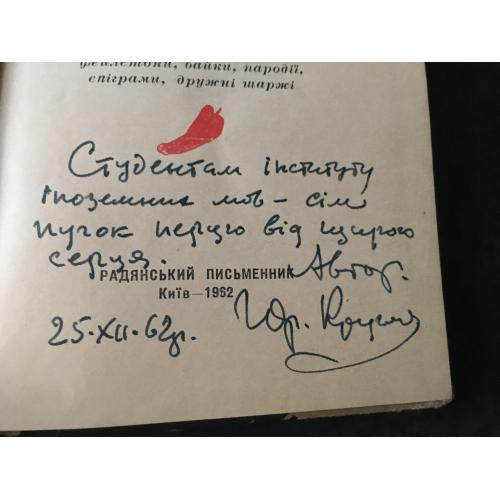 фейлетони, байки, пародії,
епіграми, дружні шаржі
Студентам інституту
іноземних мов – сім
пучок перцю від щирого
серця.
РАДЯНСЬКИЙ ПИСЬМЕННИК
Київ—1962
Автор.
25.XII.62р.
Юр. Кругляк